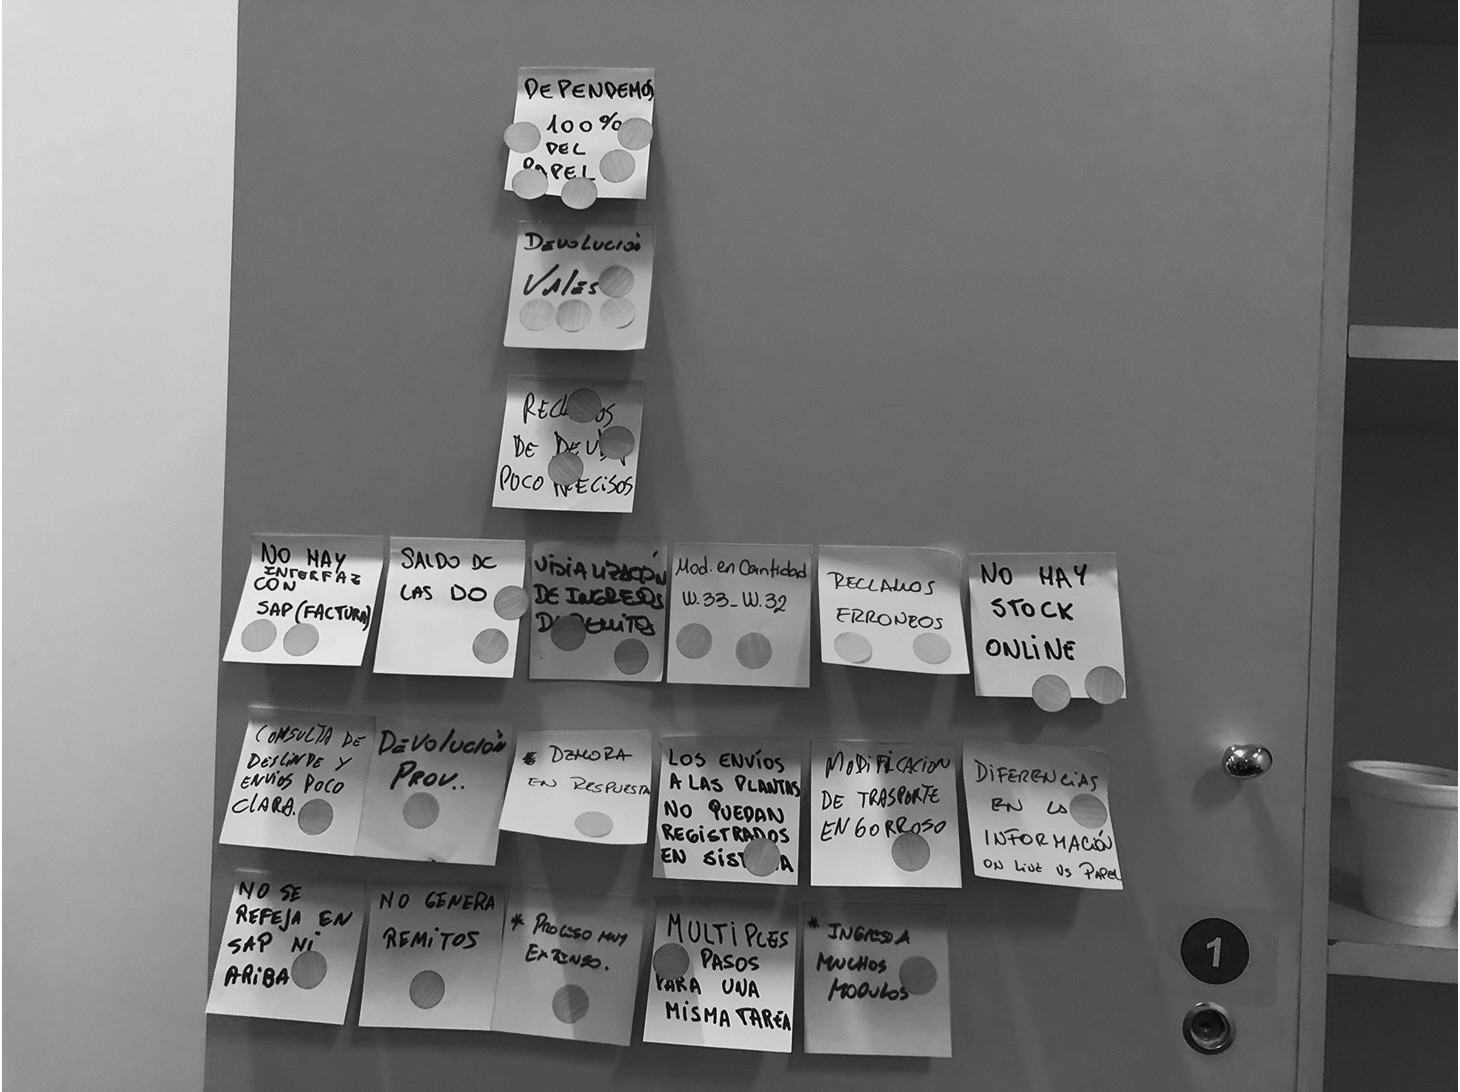 DEPENDEMOS
100%
DEL
PAPEL
DEVOLUCIÓN
VALES
DE
POCO PRECISOS
NO HAY
INTERFAZ
CON
SAP (FACTURA)
SALDO DE
LAS DO
VISIALIZACIÓN
DE INGRESOS
DE REMITOS
Mod. en Cantidad
W.33_W.32
RECLAMOS
ERRONEOS
NO HAY
STOCK
ONLINE
CONSULTA DE
DESLINDE Y
ENVIOS POCO
CLARA.
DEVOLUCIÓN
PROV..
* DEMORA
EN RESPUESTA
LOS ENVÍOS
A LAS PLANTAS
NO QUEDAN
REGISTRADOS
EN SISTEMA
MODIFICACION
DE TRASPORTE
ENGORROSO
DIFERENCIAS
EN LA
INFORMACIÓN
ON LINE VS PAPEL
NO SE
REFEJA EN
SAP NI
ARIBA
NO GENERA
REMITOS
* PROCESO MUY
EXTENSO.
MULTIPLES
PASOS
PARA UNA
MISMA TAREA
* INGRESO A
MUCHOS
MODULOS
1